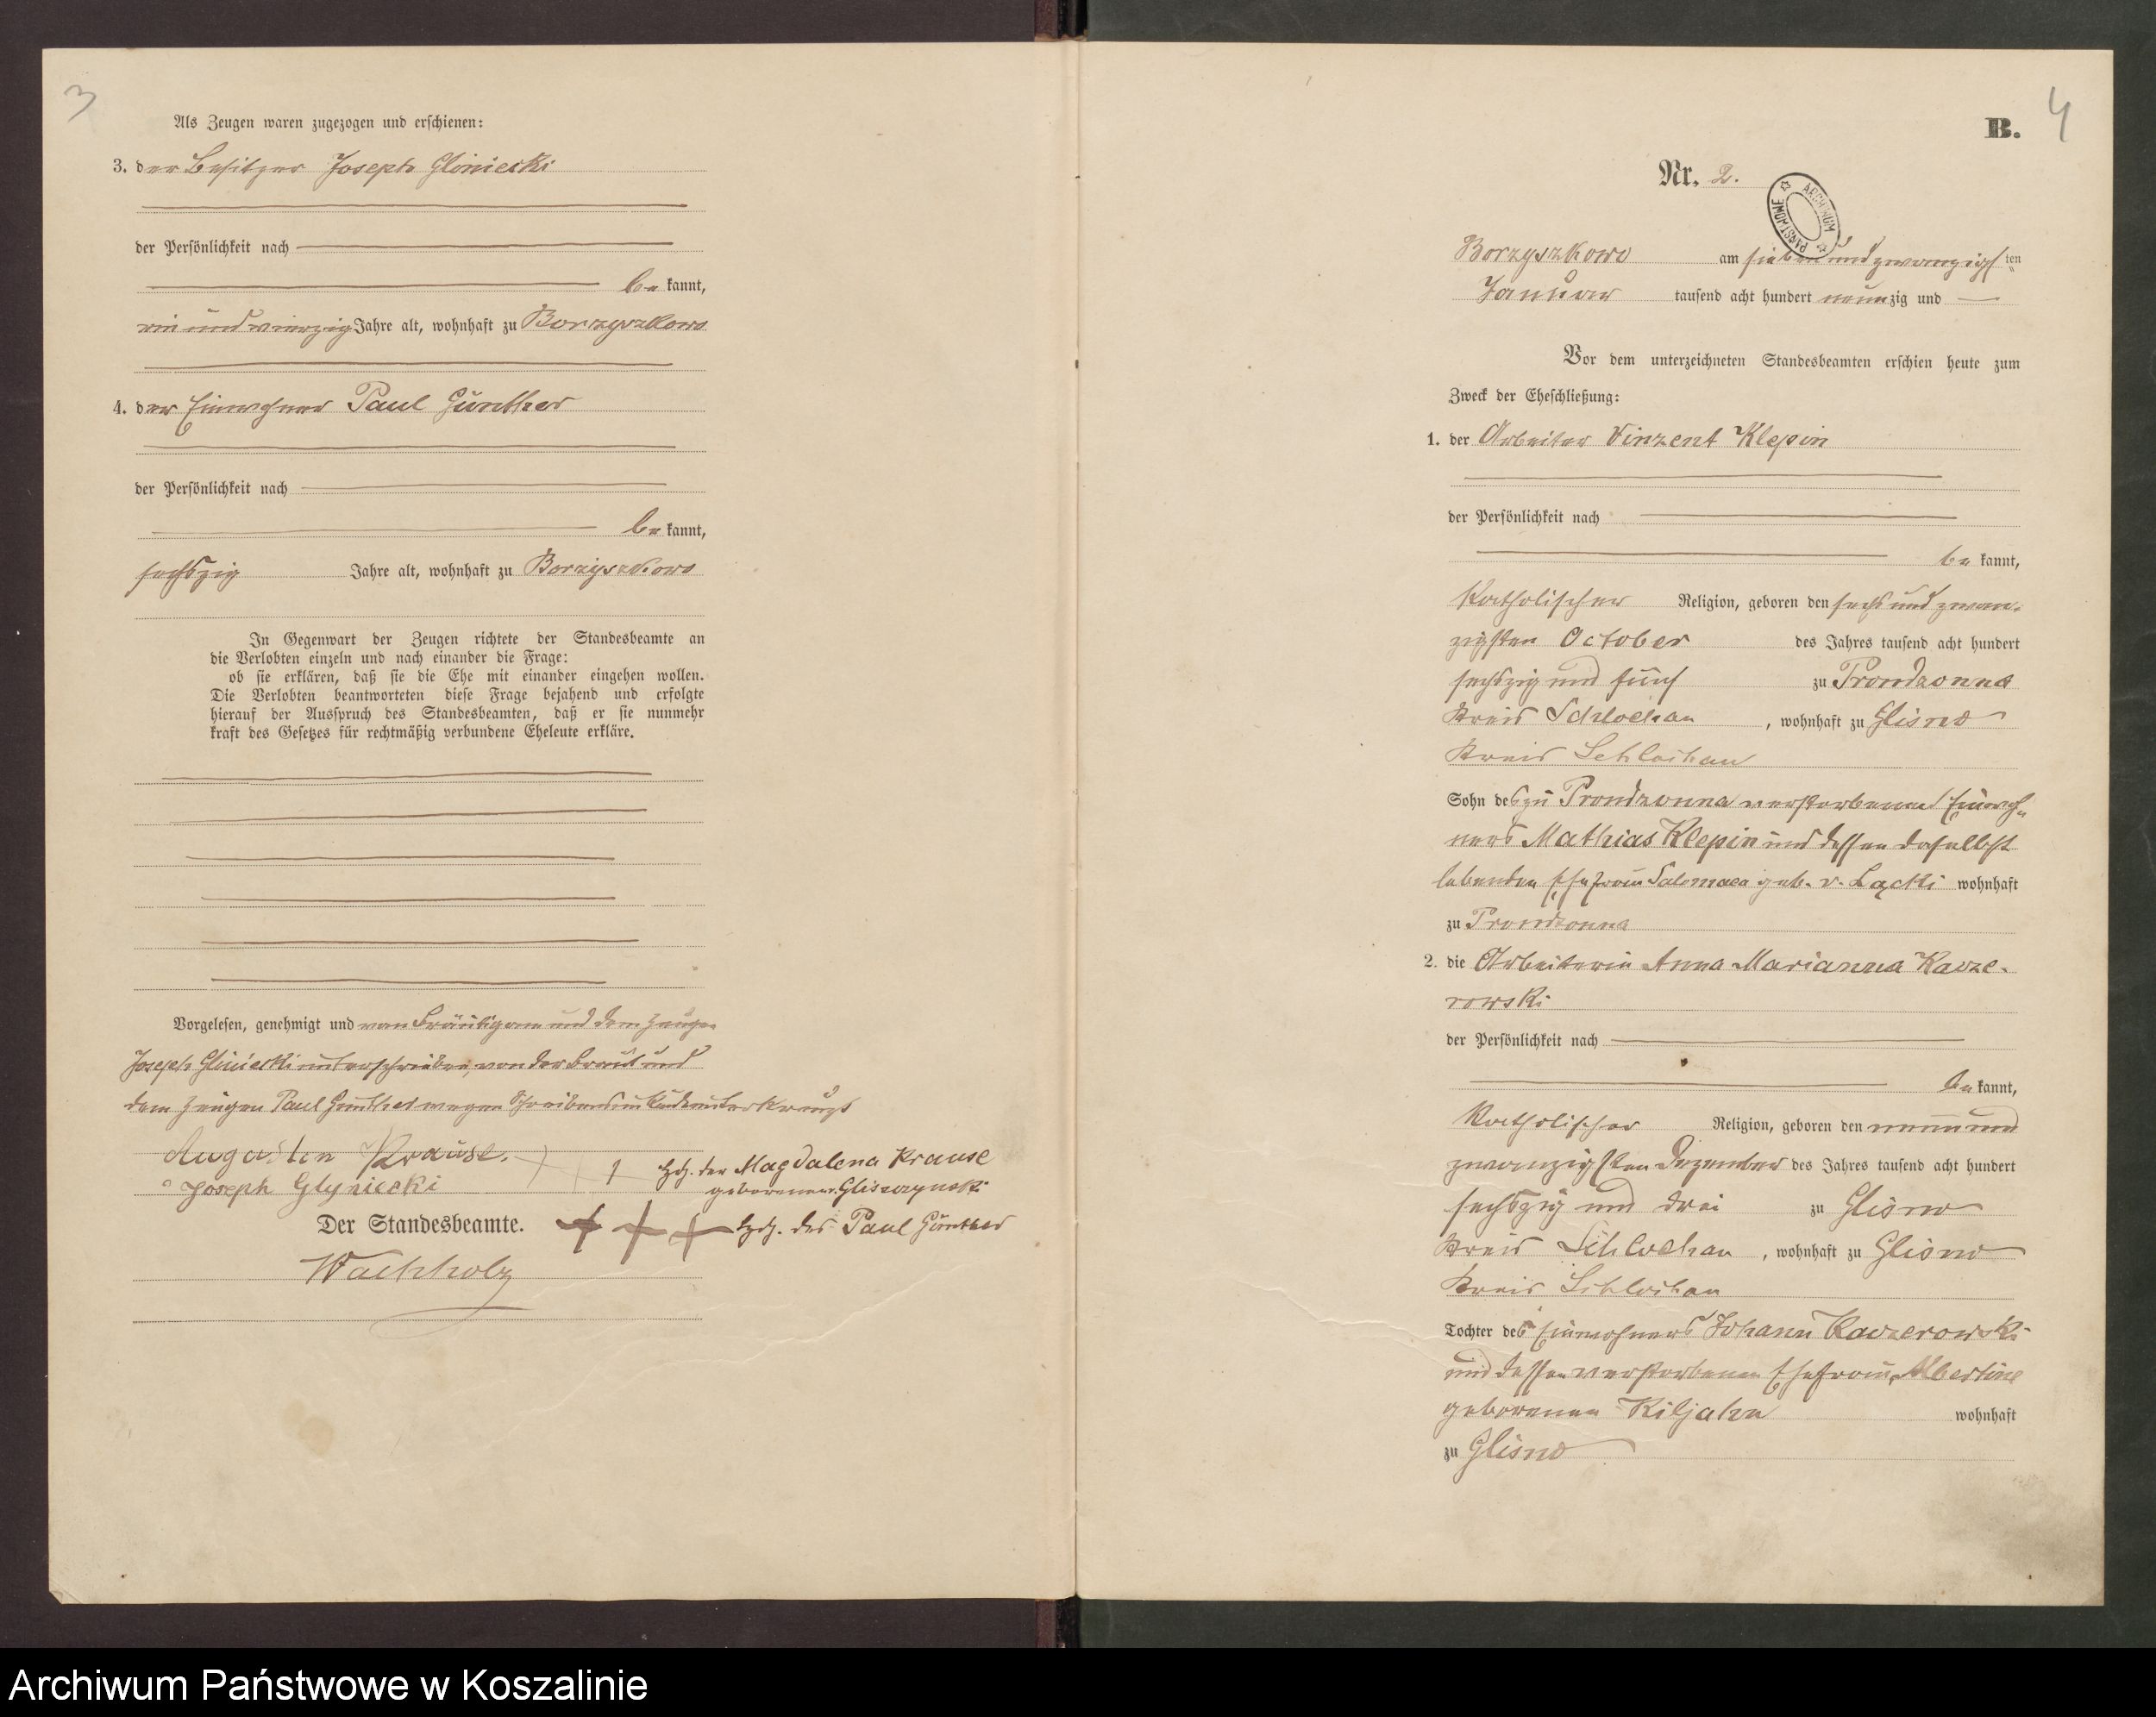 3
Als Zeugen waren zugezogen und erschienen:
3. der Besitzer Joseph Gliniecki
der Persönlichkeit nach
be kannt,
ein und vierzig Jahre alt, wohnhaft zu Borzyszkowo
4. der Einwohner Paul Günther
der Persönlichkeit nach
be kannt,
sechszig Jahre alt, wohnhaft zu Borzyszkowo
In Gegenwart der Zeugen richtete der Standesbeamte an
die Verlobten einzeln und nach einander die Frage:
ob sie erklären, daß sie die Ehe mit einander eingehen wollen.
Die Verlobten beantworteten diese Frage bejahend und erfolgte
hierauf der Ausspruch des Standesbeamten, daß er sie nunmehr
kraft des Gesetzes für rechtmäßig verbundene Eheleute erkläre.
Vorgelesen, genehmigt und vom Bräutigam und dem Zeugen
Joseph Gliniecki unterschrieben, von der Braut und
dem Zeugen Paul Günther wegen Schreibensunkunde unterkreuzt
Augustin Krause.
Joseph Glyniecki
Hdz. der Magdalena Krause
geborenen v. Gliszczynski
Der Standesbeamte.
+ + + Hdz. des Paul Günther
Wachholz
4
B.
Nr. 2.
ARCHIWUM PAŃSTWOWE
Borzyszkowo am sieben und zwanzigs ten
Januar tausend acht hundert neun zig und —
Vor dem unterzeichneten Standesbeamten erschien heute zum
Zweck der Eheschließung:
1. der Arbeiter Vinzent Klepin
der Persönlichkeit nach
be kannt,
katholischer Religion, geboren den sechs und zwan-
zigsten October des Jahres tausend acht hundert
sechszig und fünf zu Prondzonna
Kreis Schlochau, wohnhaft zu Glisno
Kreis Schlochau
Sohn des zu Prondzonna verstorbenen Einwoh-
ners Mathias Klepin und dessen daselbst
lebenden Ehefrau Salomaea geb. v. Lącki wohnhaft
zu Prondzonna
2. die Arbeiterin Anna Marianna Kacze-
rowski
der Persönlichkeit nach
be kannt,
katholischer Religion, geboren den neun und
zwanzigsten Dezember des Jahres tausend acht hundert
sechszig und drei zu Glisno
Kreis Schlochau, wohnhaft zu Glisno
Kreis Schlochau
Tochter des Einwohners Johann Kaczerowski
und dessen verstorbenen Ehefrau Albertine
geborenen Kiljahn wohnhaft
zu Glisno
Archiwum Państwowe w Koszalinie